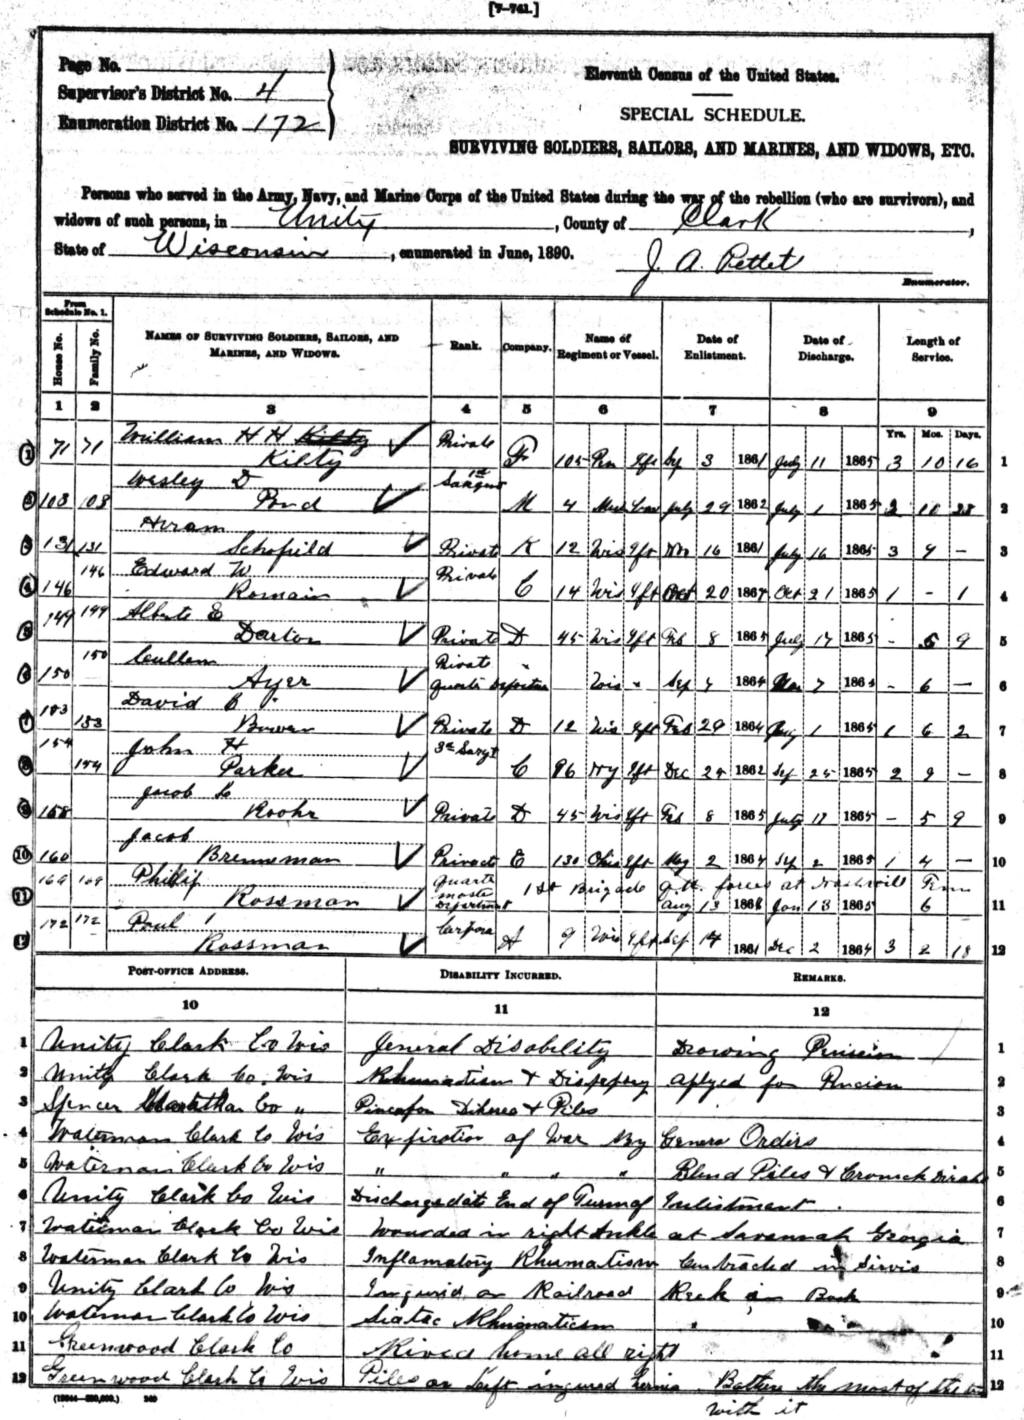 [7-761.]
Page No.
Supervisor's District No. 4
Enumeration District No. 172
Eleventh Census of the United States.
SPECIAL SCHEDULE.
SURVIVING SOLDIERS, SAILORS, AND MARINES, AND WIDOWS, ETC.
Persons who served in the Army, Navy, and Marine Corps of the United States during the war of the rebellion (who are survivors), and
widows of such persons, in Unity, County of Clark,
State of Wisconsin, enumerated in June, 1890. J. A. Pettet
Enumerator.
From Schedule No. 1.
House No. Family No. NAMES OF SURVIVING SOLDIERS, SAILORS, AND MARINES, AND WIDOWS. Rank. Company. Name of Regiment or Vessel. Date of Enlistment. Date of Discharge. Length of Service.
1 2 3 4 5 6 7 8 9
Yrs. Mos. Days.
1 71 71 William H H Kilty Kilty Private F 105 Pen Sep 3 1861 July 11 1865 3 10 16 1
2 103 103 Wesley D Pond 1st M 4 July 29 1862 July 1 1865 2 10 2
3 131 131 Hiram Schofield Private K 12 Wis Nov 16 1861 July 16 1865 3 - 3
4 146 146 Edward W Romain Private C 14 Wis Oct 20 Oct 21 1865 1 - 1 4
5 149 149 Darton Private D 45 Wis Feb 8 1865 July 17 1865 - 5 9 5
6 150 150 Cullen Ayer Private Wis " Sep 7 1864 7 - 6 - 6
7 153 153 David Bowen Private D 12 Wis Feb 29 1864 Aug 1 1865 1 6 2 7
8 154 154 John H Parker 3rd Sargt C 96 NY Dec 24 1862 Sep 25 1865 2 9 - 8
9 158 Jacob Roohr Private D 45 Wis Feb 8 1865 July 17 1865 - 5 9 9
10 160 Jacob Brenneman Private E 130 Ohio May 2 1864 Sep 2 1865 1 4 - 10
11 Phillip Rossman 1st Brigade forces at Tenn Aug 13 Jan 13 1865 6 11
12 172 172 Paul Rossman A 9 Wis Sep 14 1861 Dec 2 1864 3 2 18 12
POST-OFFICE ADDRESS. DISABILITY INCURRED. REMARKS.
10 11 12
1 Unity Clark Co Wis General Disability Drowing Pinsion 1
2 Unity Clark Co. Wis Rhumatism & Aplyed for Pincion 2
3 Spencer Co " & Piles 3
4 Waterman Clark Co Wis Expiration of War By Genera Orders 4
5 Waterman Clark Co Wis " " " " Blind Piles & 5
6 Unity Clark Co Wis Discharge date End of Turm of Inlistment. 6
7 Waterman Clark Co Wis Wounded in right Ankle at Savannah Georgia 7
8 Waterman Clark Co Wis Inflamatory Rhumatism Contracted in Sirvis 8
9 Unity Clark Co Wis Ingurid on Railroad Reck in Back 9
10 Waterman Clark Co Wis Siatac Rhumaticism " 10
11 Greenwood Clark Co Rived home all right 11
12 Greenwood Clark Co Wis Piles or Left ingured hernia. Bothers the most of the
with it